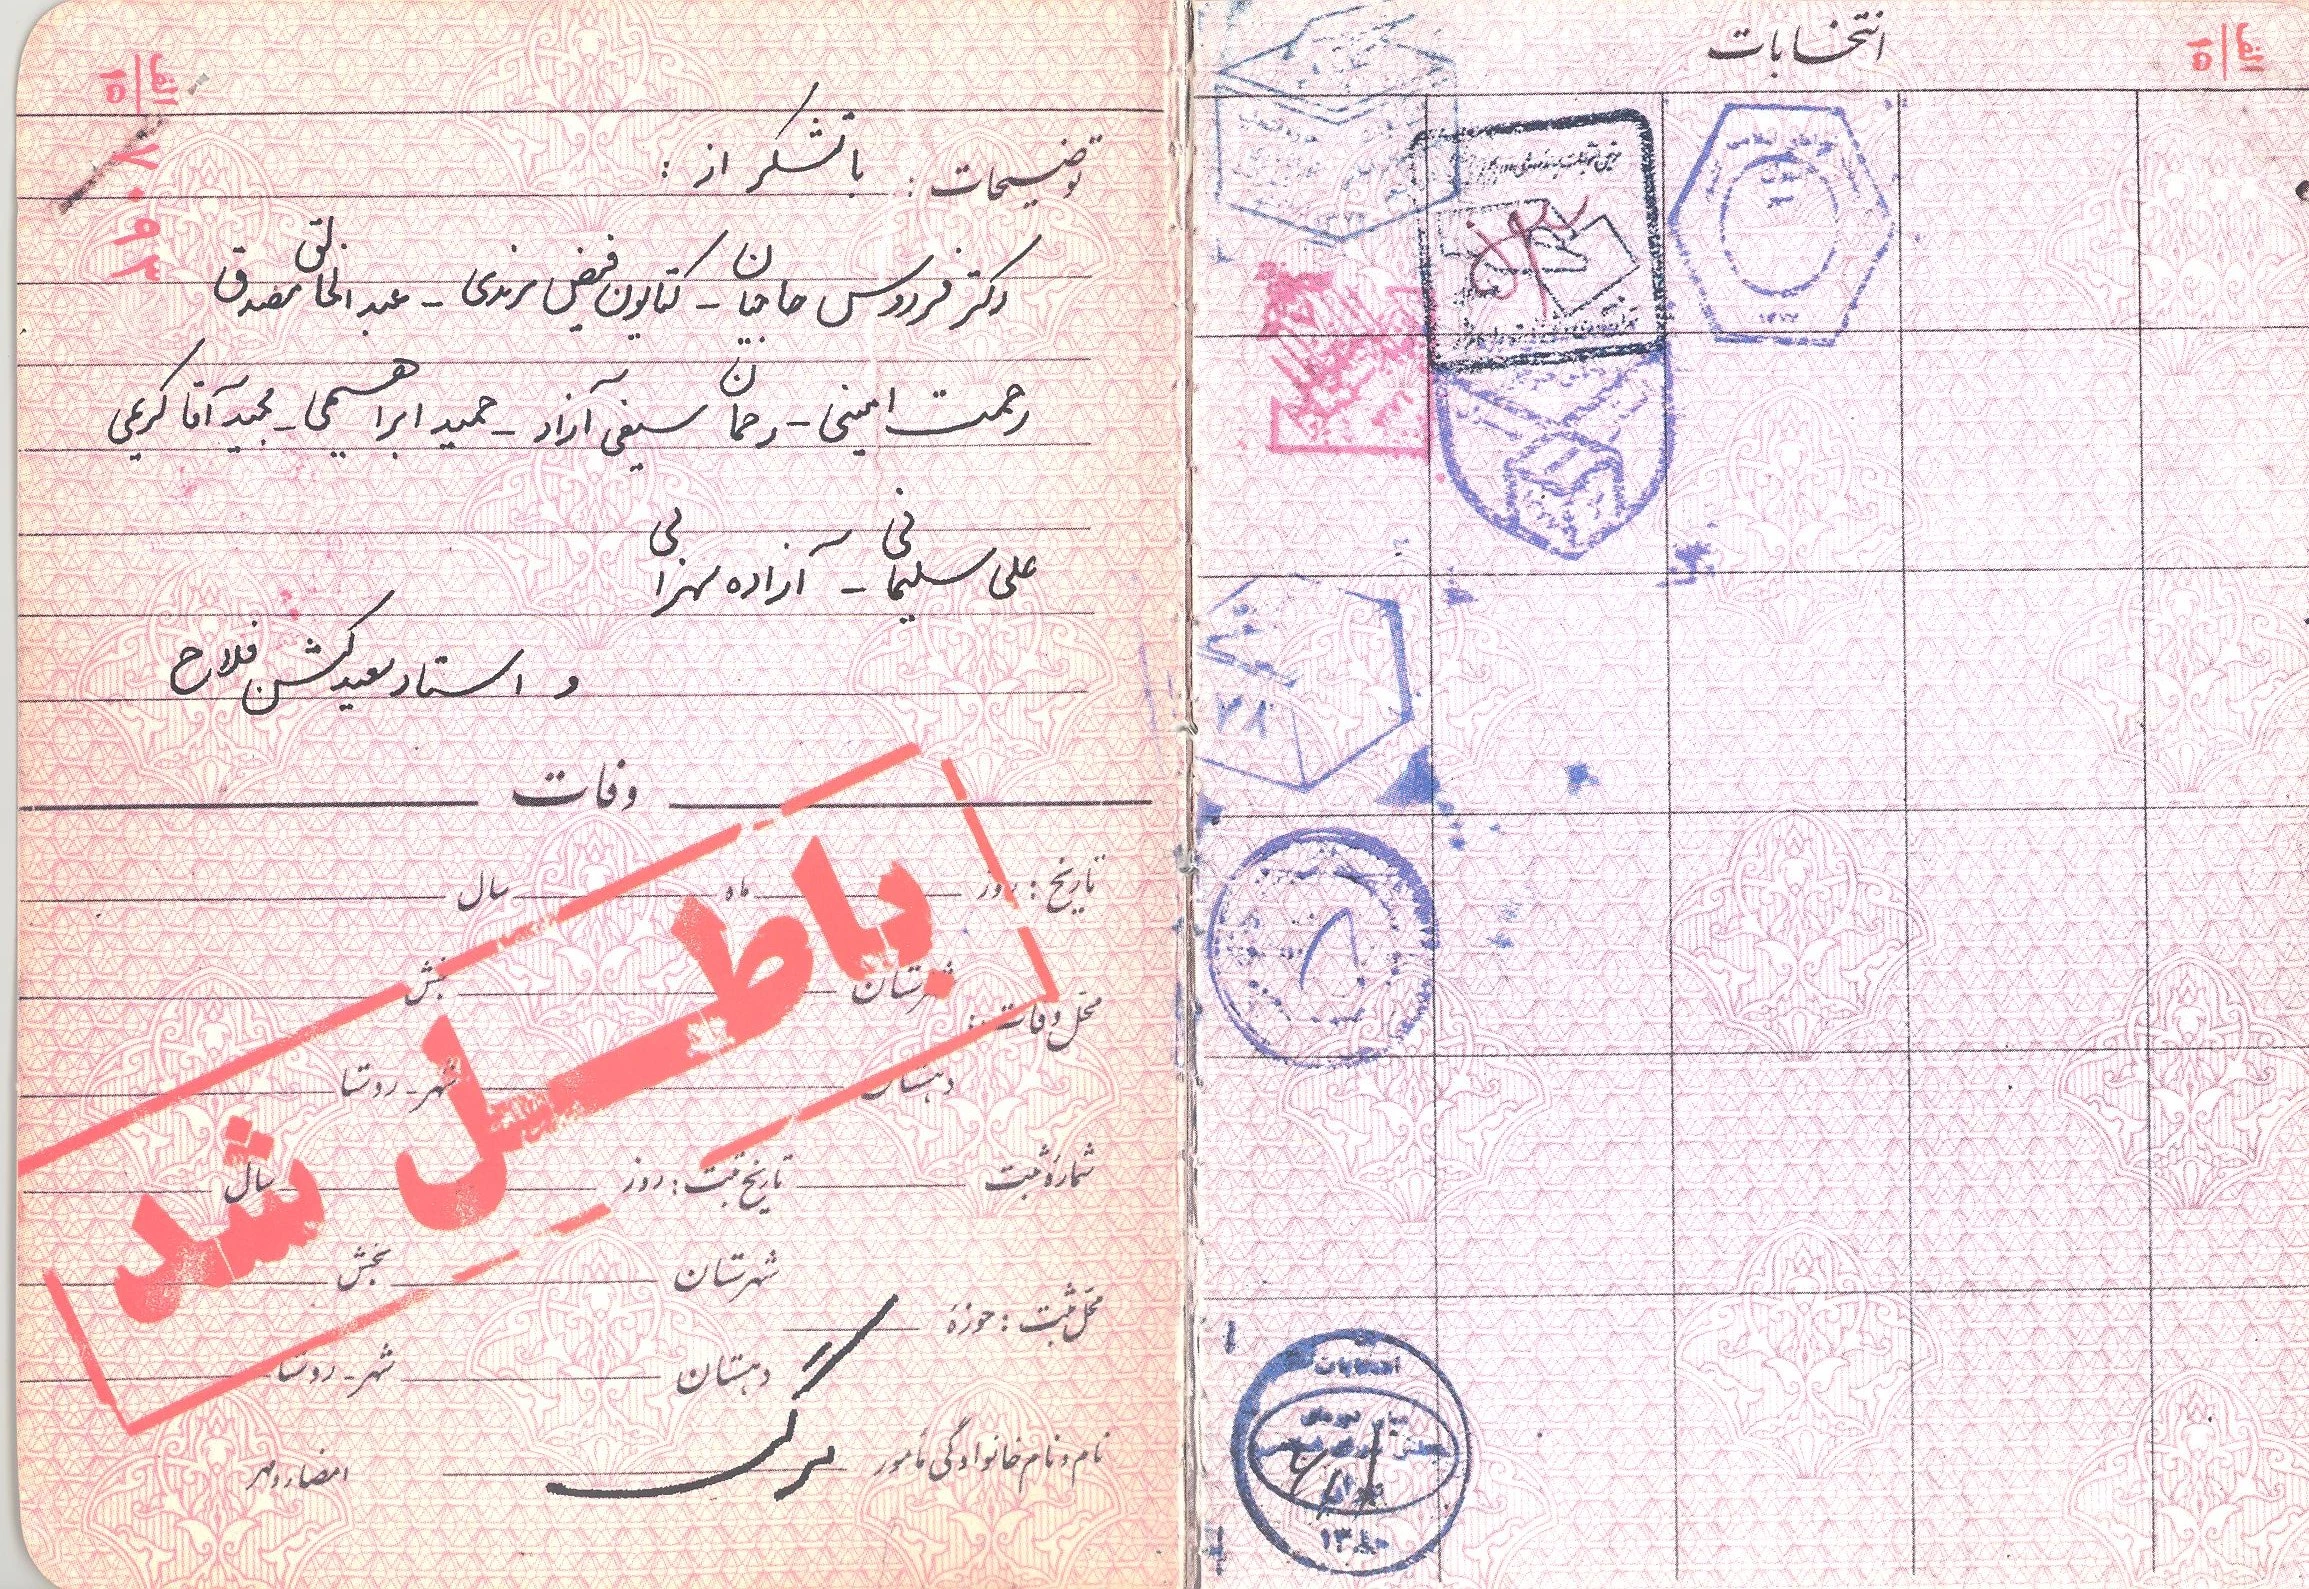 انتخابات
الف
۱۵
الف
۱۵
۷۰۹۳
توضیحات : با تشکر از :
دکتر فردوس حاجیان - کتایون فیض مرندی - عبدالخالق مصدق
رحمت امینی - رحمان سیفی آزاد - حمید ابراهیمی - مجید آقا کریمی
علی سلیمانی - آزاده سهرابی
و استاد سعید کشن فلاح
وفات
تاریخ : روز ماه سال
شهرستان بخش
محل وفات :
دهستان شهر - روستا
باطل شد
شماره ثبت تاریخ ثبت : روز سال
شهرستان بخش
محل ثبت : حوزه
دهستان شهر - روستا
نام و نام خانوادگی مأمور مرگ امضاء و مهر
۷۸
انتخابات
میان دوره‌ای